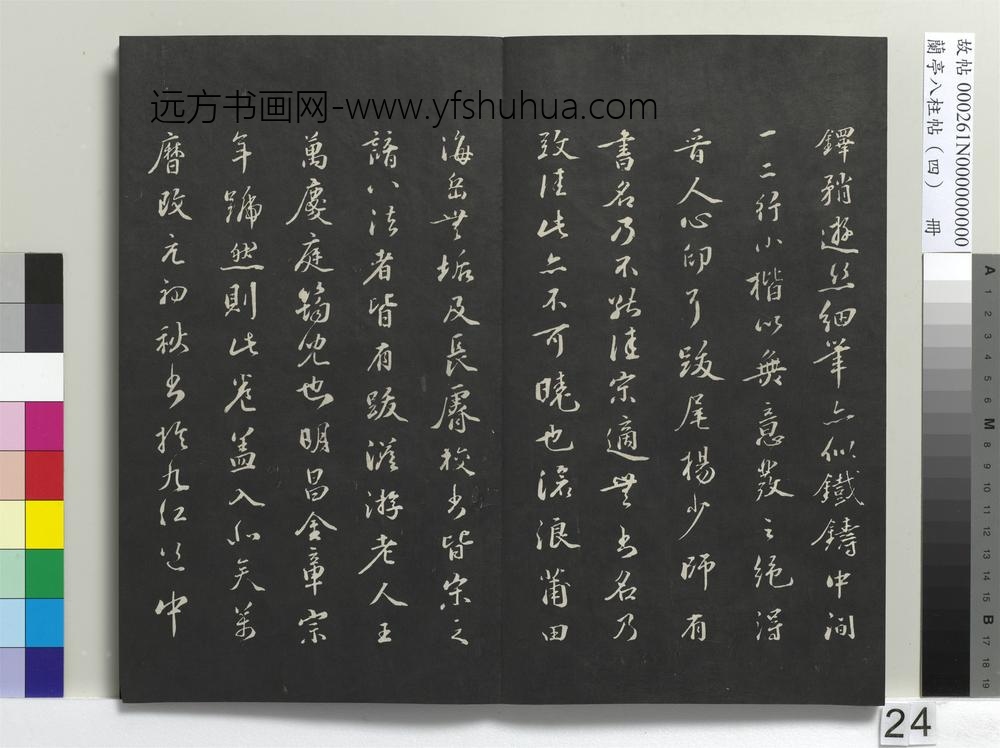 鐸矟遊丝細筆亦似鐵鑄中间
一二行小楷以無意發之絶得
晋人心印了跋尾楊少師有
書名乃不能佳宗適無书名乃
致佳此亦不可曉也滄浪莆田
海岳無垢及長睿校书皆宗之
諳八法者皆有跋漫游老人王
萬慶庭筠児也明昌金章宗
年號然則此卷盖入北矣萬
曆改元初秋书於九江道中
远方书画网-www.yfshuhua.com
故帖 000261N000000000
蘭亭八柱帖（四） 冊
A 1 2 3 4 5 6 M 8 9 10 11 12 13 14 15 B 17 18 19
24